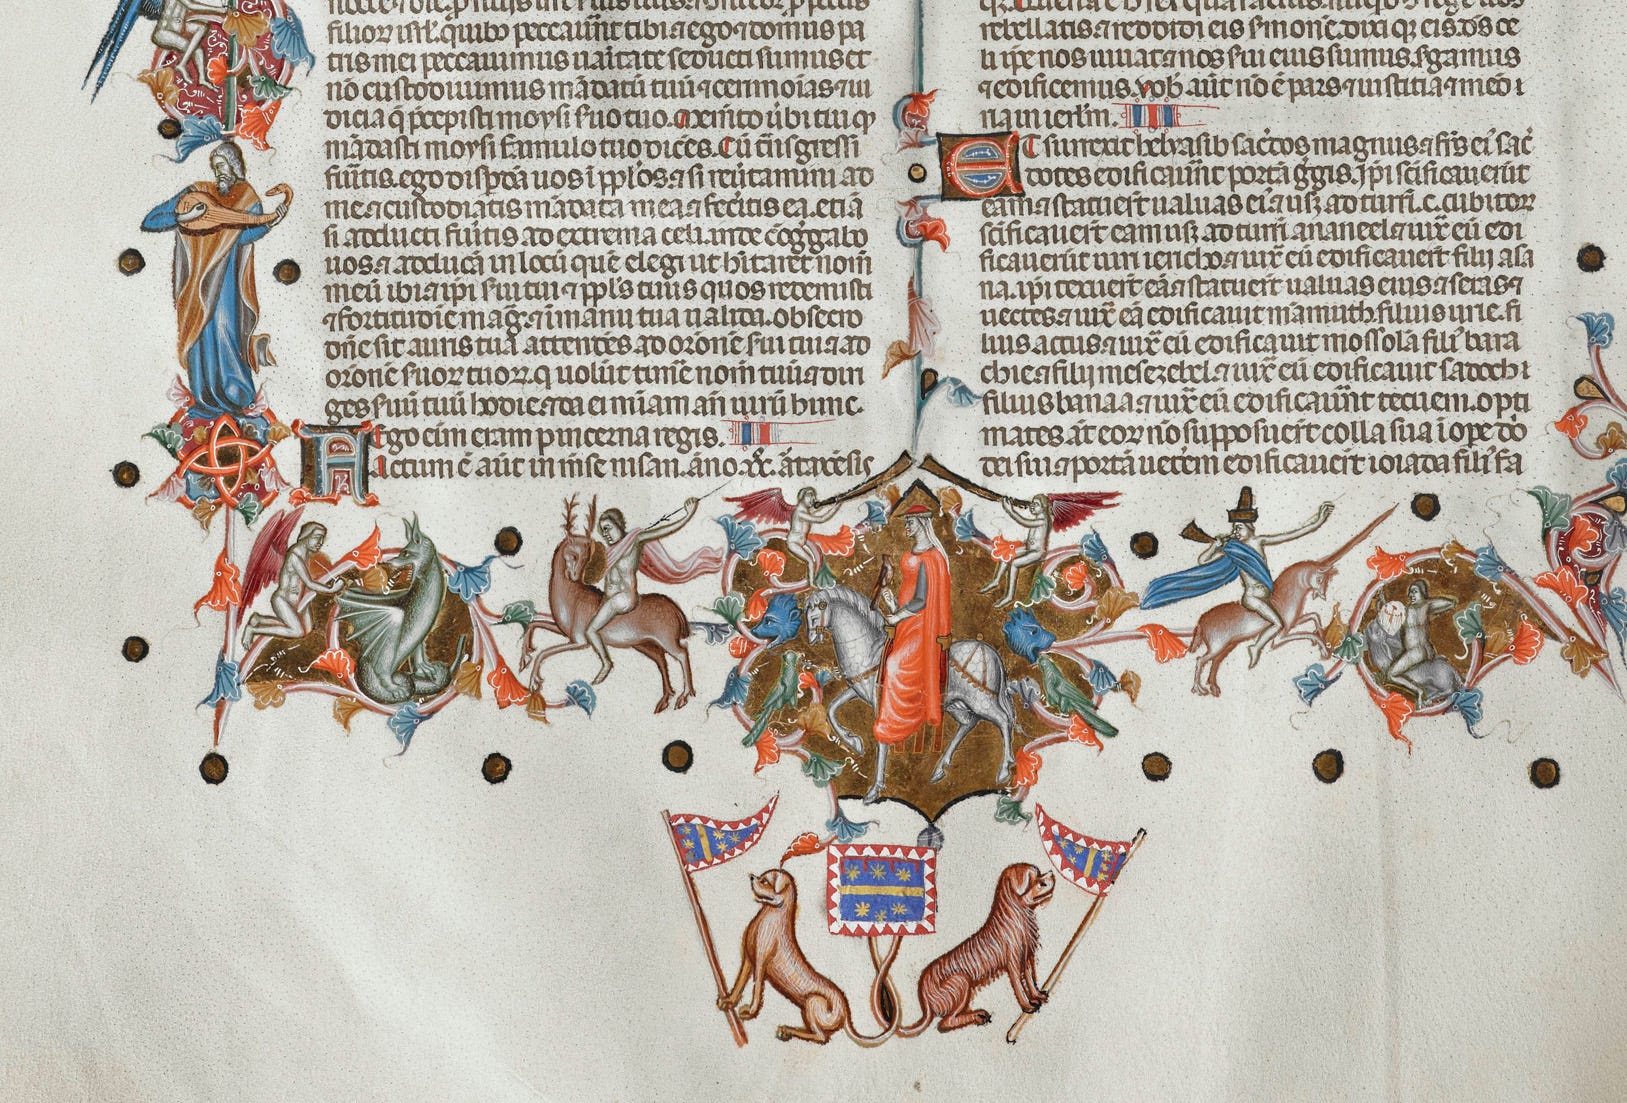 filioꝝ isrl. quibꝰ peccauer̄t tibi ⁊ ego ⁊ domus pa
tris mei peccauimus uanitate seducti sumus et
nō custodiuimus mādatū tuū ⁊ cerimoias ⁊ iu
dicia q̄ p̄cepisti moysi suo tuo. memēto ūbi tui qd̄
mādasti moysi famulo tuo dicēs. Cū tn̄sgressi
fiūtis. ego dispḡā uos ī ppl'os. ⁊ si reūtamini ad
me. ⁊ custodiatis mādata mea ⁊ fec̄itis ea. etiā
si adducti fiūtis ad extrema celi. inde cōg̃gabo
uos. ⁊ adducā in locū quē elegi ut hītaret nom̄
meū ibi. ⁊ ip̄i s̄ui tui ⁊ ppl's tuus quos redemisti
ī fortitudīe mag̃. ⁊ ī manu tua ualida. Obsecro
dn̄e sit auris tua attendēs ad orōnē s̄ui tui ⁊ ad
orōnē s̄uoꝝ tuoꝝ. q uolūt timē nom̄ tuū ⁊ diri
ges s̄uū tuū hodie. ⁊ da ei mīam an̄ uirū hunc.
Ego eīm eram pincerna regis.
Factum ē aūt in mēse nisan. āno .xx. ātaxēsis
rebellatis. ⁊ reddidi eis s̄monē. dixi qꝫ eis. ds̄ ce
li ip̄e nos iuuat. ⁊ nos s̄ui eius sumus. s̄gamus
⁊ edificemus. uob̄ aūt nō ē pars ⁊ iustitia ⁊ meōi
na in ierl'm.
ET surrexit helyasib sac̄dos magnus ⁊ fr̄s ei' sac̄
dotes edificauer̄t portā g̃gis. ip̄i sc̄ificauerūt
eam. ⁊ statuer̄t ualuas ei' ⁊ usqꝫ ad turrī .c. cubitoꝝ
sc̄ificauer̄t eam usqꝫ ad turrī ananeel. ⁊ iux̄ eū edi
ficauerūt uiri iericho. ⁊ iux̄ eū edificauer̄t filij asa
na. ip̄i texuer̄t eā ⁊ statuer̄t ualuas eius ⁊ seras ⁊
uectes. ⁊ iux̄ eā edificauit marimuth. filius urie. fi
lius accus. ⁊ iux̄ eū edificauit mosolā fili' bara
chie. ⁊ filij mesezebel. ⁊ iux̄ eū edificauit sadoch
filius banaa. ⁊ iux̄ eū edificauer̄t tecuem. opti
mates āt eoꝝ nō supposuer̄t colla sua ī ope dō
dei sui. ⁊ portā ueterem edificauer̄t ioiada fili' fa